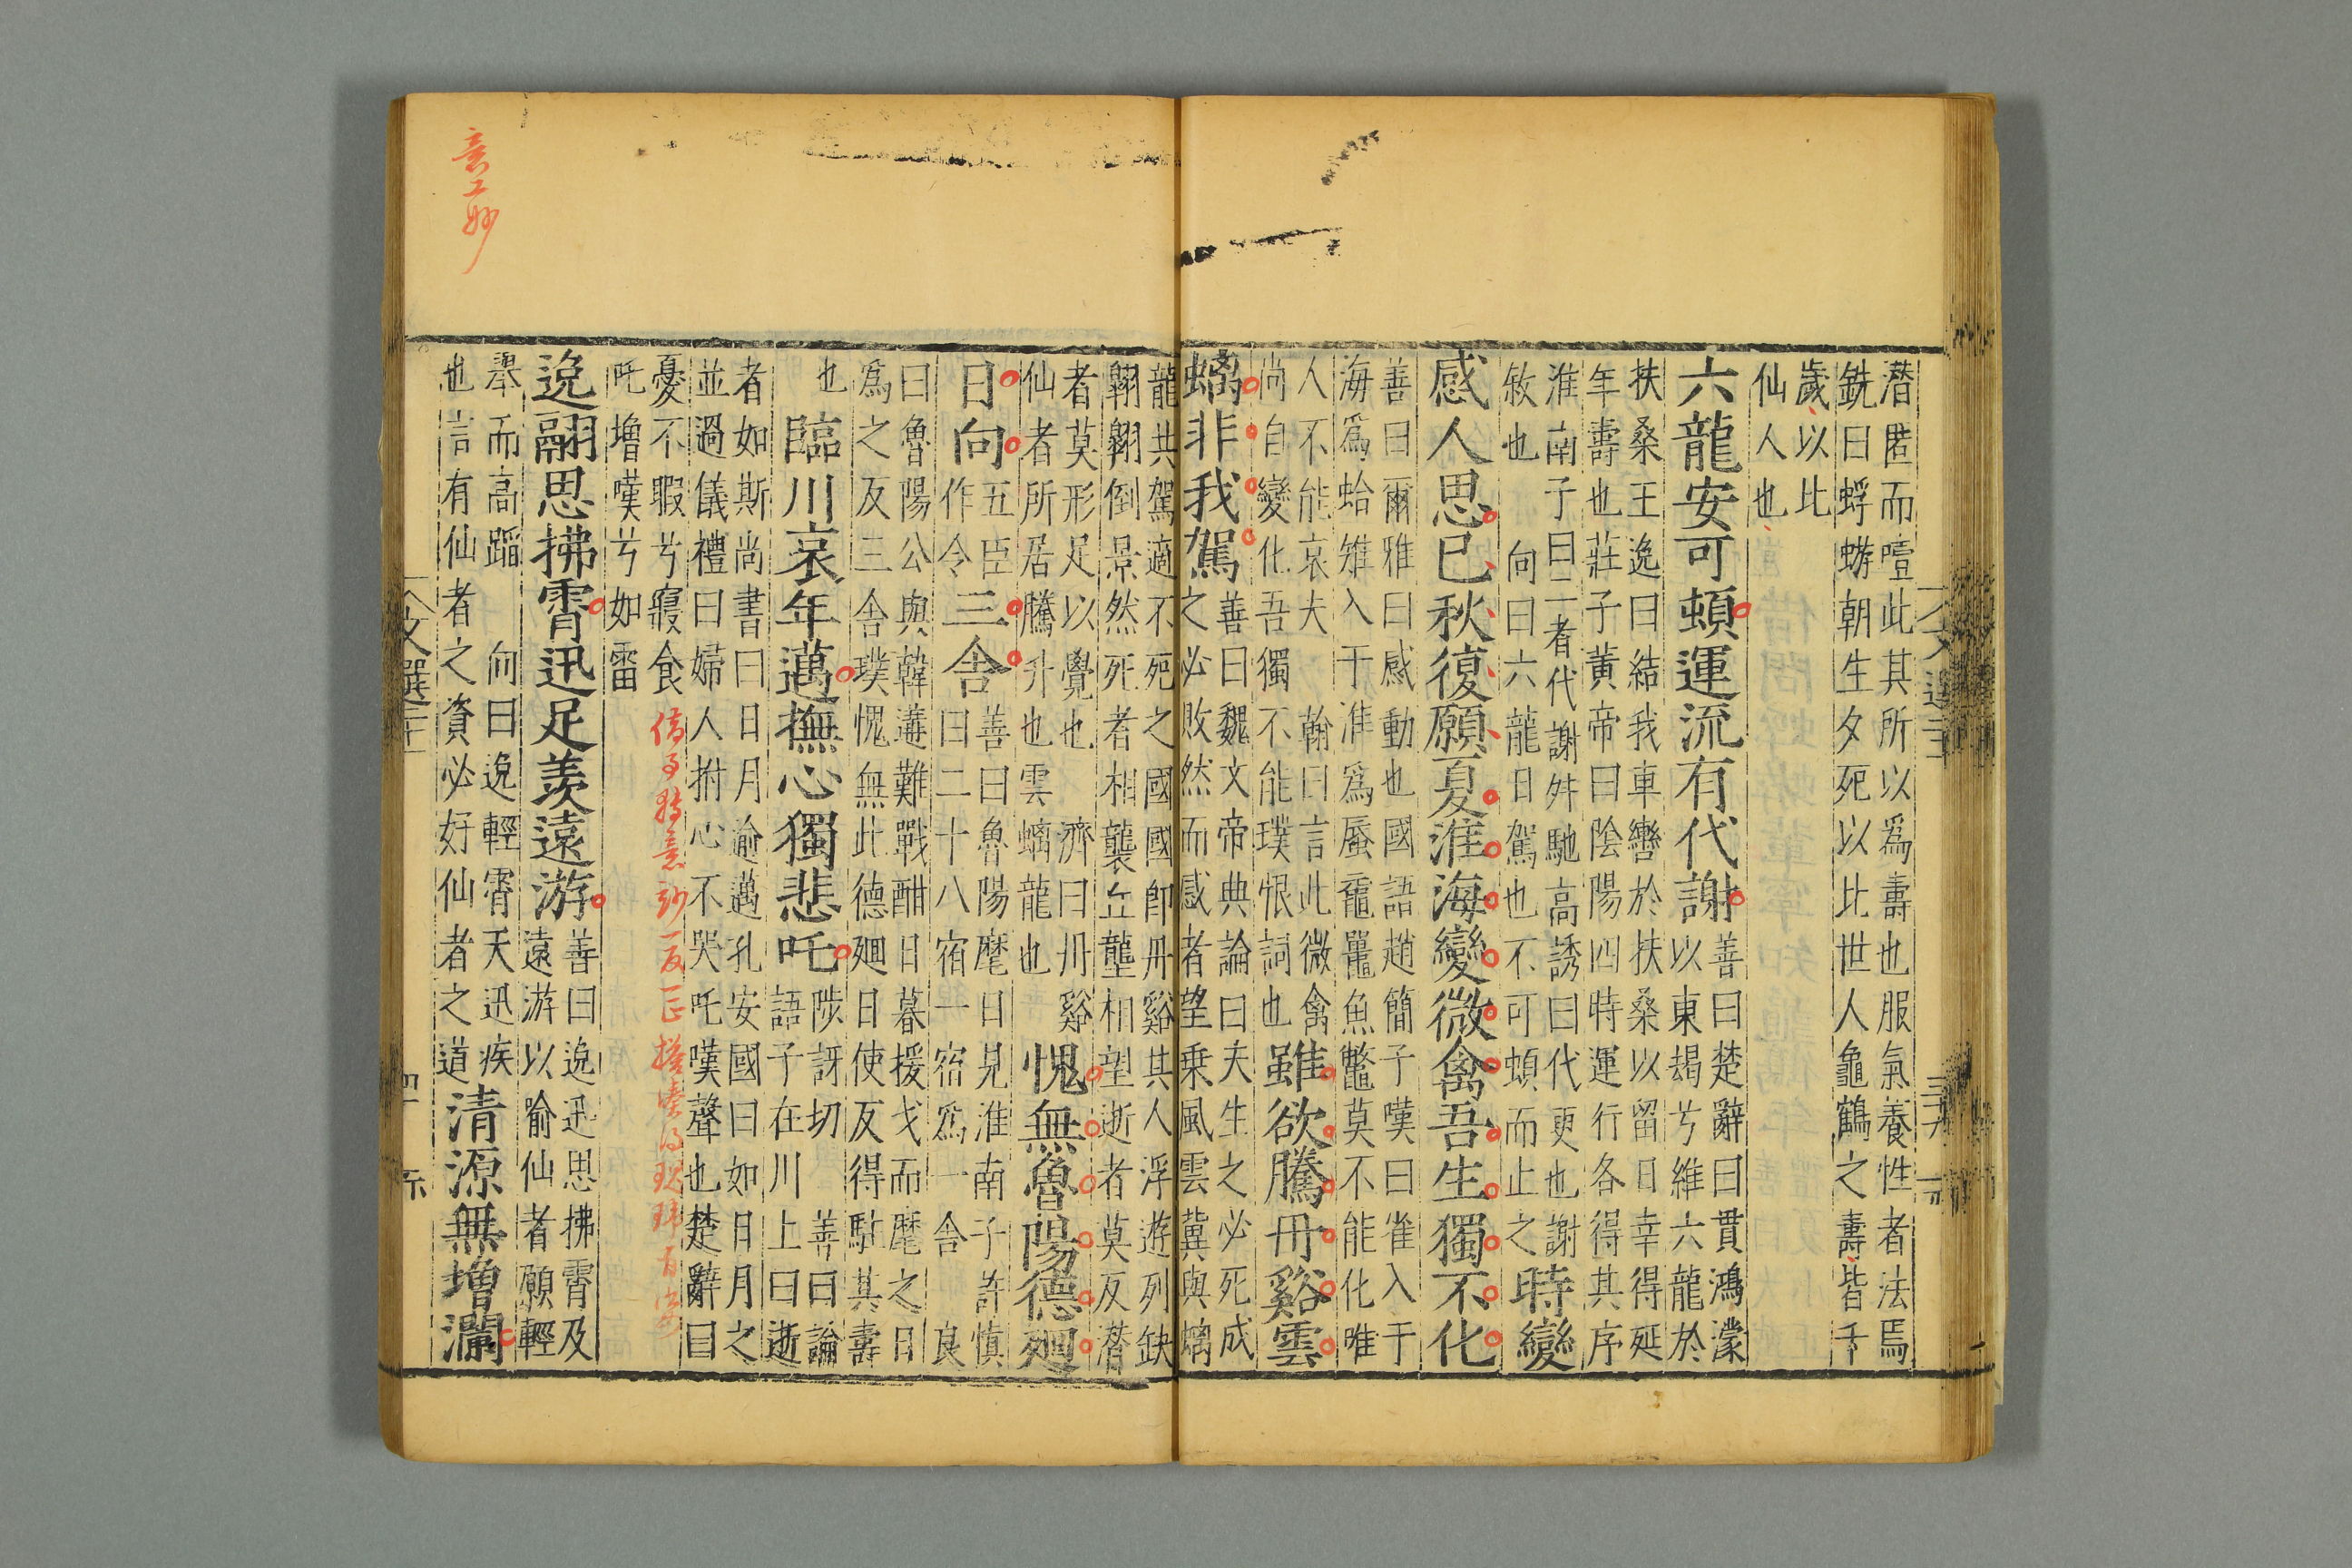 潛匿而噎此其所以爲壽也服氣養性者法焉
銑曰蜉蝣朝生夕死以比世人龜鶴之壽皆千
歲以比
仙人也
六龍安可頓運流有代謝
善曰楚辭曰貫鴻濛
以東朅兮維六龍於
扶桑王逸曰結我車轡於扶桑以留日幸得延
年壽也莊子黃帝曰陰陽四時運行各得其序
淮南子曰二者代謝舛馳高誘曰代更也謝
敘也 向曰六龍日駕也不可頓而止之
時變
感人思已秋復願夏淮海變微禽吾生獨不化
善曰爾雅曰感動也國語趙簡子嘆曰雀入于
海爲蛤雉入于淮爲蜃黿鼉魚鼈莫不能化唯
人不能哀夫 翰曰言此微禽
尚自變化吾獨不能璞恨詞也
雖欲騰丹谿雲
螭非我駕
善曰魏文帝典論曰夫生之必死成
之必敗然而感者望乗風雲冀與螭
龍共駕適不死之國國卽丹谿其人浮遊列缺
翱翔倒景然死者相襲丘壟相望逝者莫反潛
者莫形足以覺也 濟曰丹谿
仙者所居騰升也雲螭龍也
愧無魯陽德廻
日向
五臣
作令
三舍
善曰魯陽麾日見淮南子 許慎
曰二十八宿一宿爲一舍 良
曰魯陽公與韓遘難戰酣日暮援戈而麾之日
爲之反三舍璞愧無此德廻日使反得駐其壽
也
臨川哀年邁撫心獨悲吒
陟訝切 善曰論
語子在川上曰逝
者如斯尚書曰日月逾邁孔安國曰如日月之
並過儀禮曰婦人拊心不哭吒嘆聲也楚辭曰
憂不暇兮寢食
吒增嘆兮如雷
逸翮思拂霄迅足羨遠游
善曰逸迅思拂霄及
遠游以喻仙者願輕
舉而高蹈 向曰逸輕霄天迅疾
也言有仙者之資必好仙者之道
清源無增瀾
意工妙